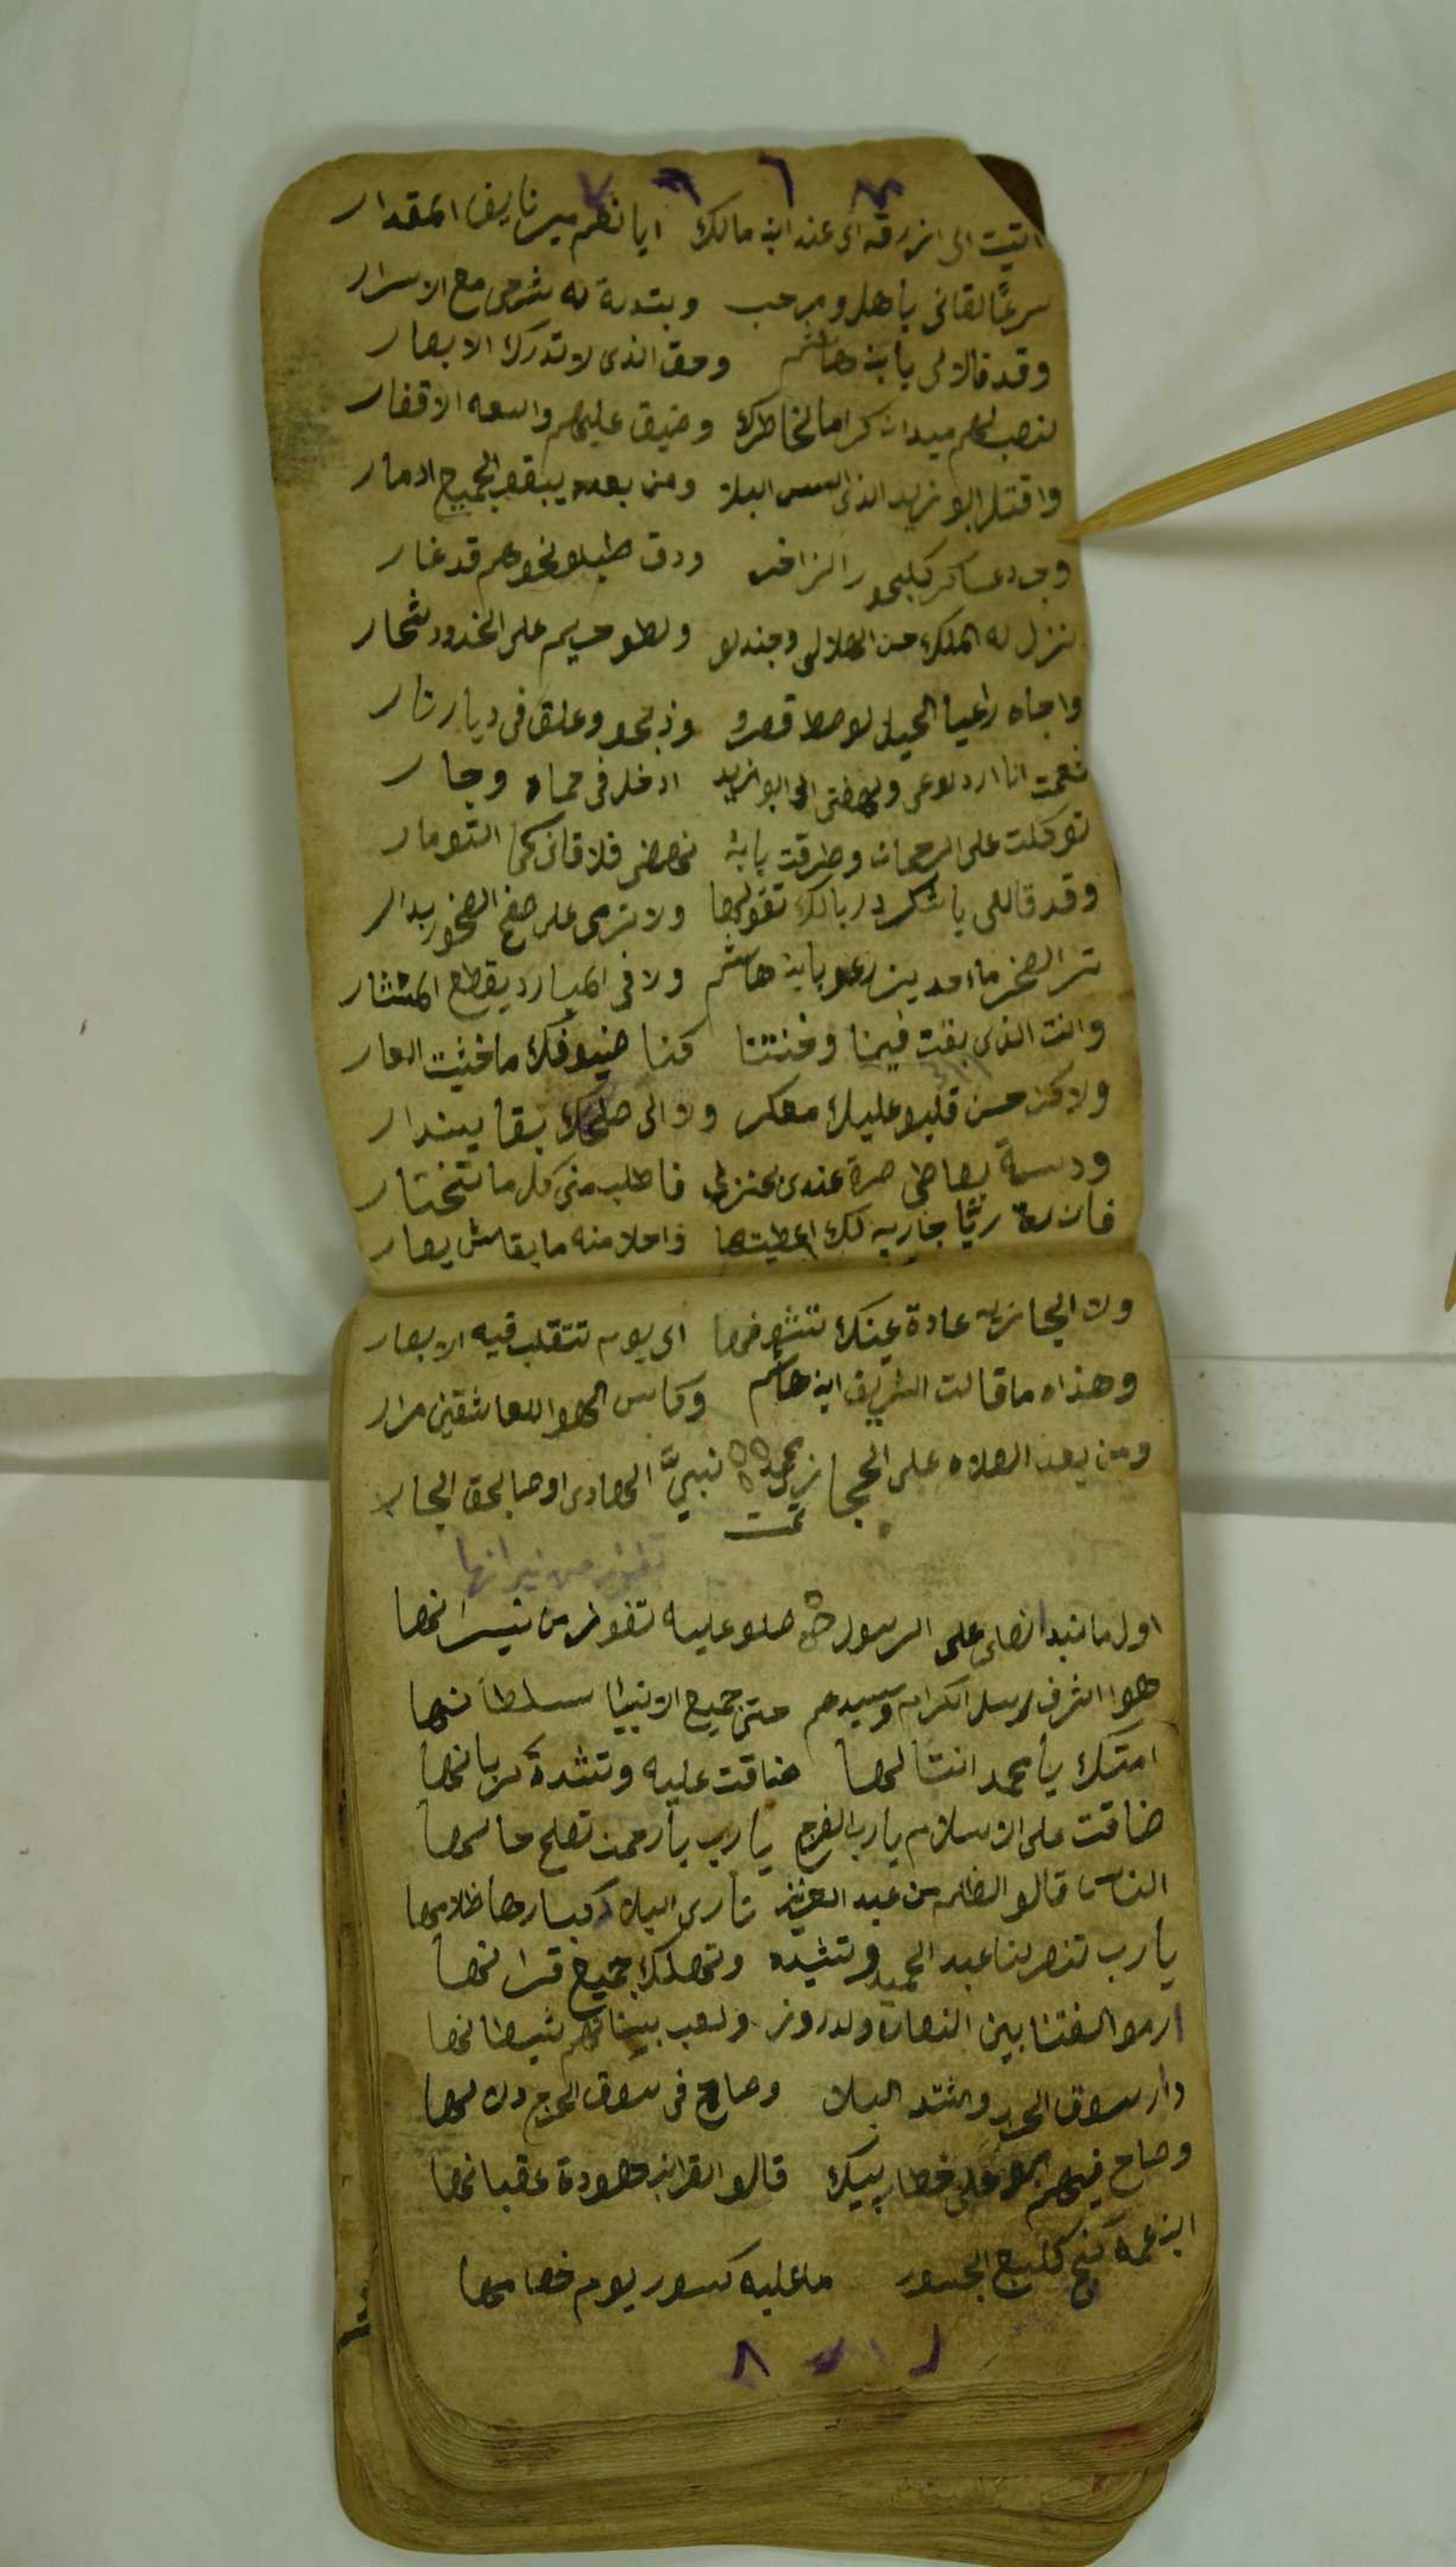 اتيت الى ازرقه اى عند ابن مالك ايا نعم مير نايف المقدار
سرعًا لقانى ياهلو مرحب وبتدية له بشرحى مع الاسرار
وقد قالا لى يابن هاشم وحق الذى لا تدرك الابصار
لنصب لهم ميدان كراما لخاطرك وضيق عليهم واسعه الاقفار
واقتل ابو زيد الذى اسس البلا ومن بعده يبقو الجميع ادمار
وجرد عساكر كلبحور الزاخر ودق طبلو نحوهم قد غار
نزل له الملك حسن الهلالى وجندلو ولطو حريم على الخدود شحار
واجاه راعيا الحيل لوصط قصرو وذبحو وعلق فى ديار نار
نعمت انا ارد لوعى ونهضتى الى ابو زيد ادخل فى حماه وجار
توكلت على الرحمان وطرقت بابه نهض فلاقانى كما التومار
وقد قاللى يا شكر دربالك تقولها ولا ترمى على صفح الصخور بدار
تر الصخر ماء مدينزرعو يابن هاشم ولا فى المبارد يقطع المنشار
وانت الذى بقت فينا وخنتنا كنا ضيوفك ما خشيت العار
ولاكن حسن قلبو عليك معكر ولا الى صلحك بقا يندار
ودسة بصاطى صرة عندى بمنزلى فاطلب منى كل ما تختار
فان ردة ريًا جاريه لك اعطيتها واحلا منه ما بقاش يصار
ولا الجازيه عادة عينك تشوفها الى يوم تتقلب فيه الابصار
وهذا ما قالت الشريف ابن هاشم وكاس الهوا للعاشقين مرار
ومن بعد الصلاه على الحجازي محمد نبيَّ الهادى اوصا بحق الجار
تمت
تفوز من نيرانها
اول ما نبدا نصلى على الرسول صلو عليه تفوز من نيرانها
هوا اشرف رسل الكرام وسيدهم حتى جميع الانبيا سلطانها
امتك يا محمد انتا لها ضاقت عليه وتشدة كربانها
ضاقت على الاسلام يارب الفرج يارب يا رحمن تصلح حالها
الناس قالو الظلم من عبد العزيز تارى البلا كبارها ظلامها
يارب تنصر لنا عبد الحميد وتشيده وتهلك جميع قرانها
ارمو الفتنا بين النصاره ولدروز ولعب بيناتهم شيطانها
دار سوق الحرب واشتد البلا وصاح فى سوق الحرج دلالها
وصاح فيهم على خطار بيك قالو القرايب هودة عقبانها
ابن عمه كنج الجسور ما عليه كسور يوم خصامها